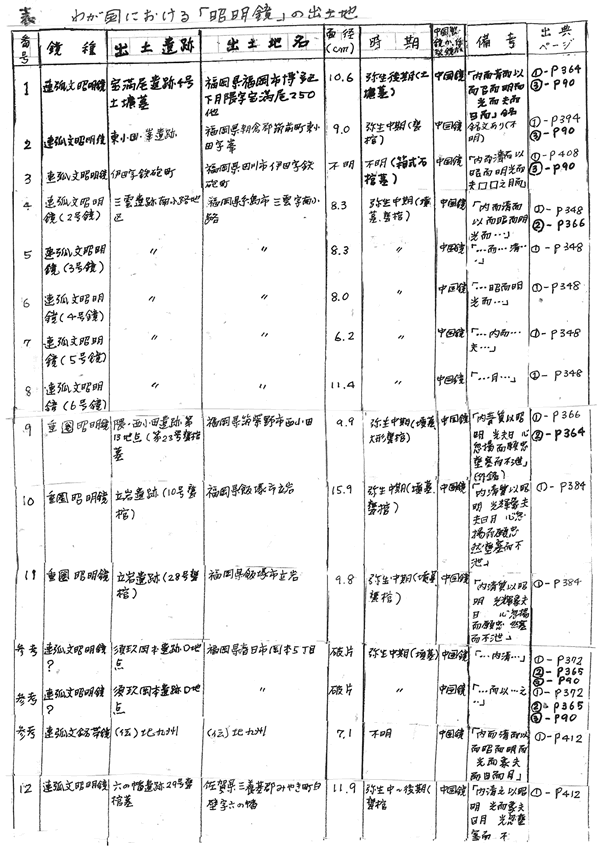 表 わが国における「昭明鏡」の出土地
番号 鏡種 出土遺跡 出土地名 面径(cm) 時期 備考 出典ページ
1 連弧文昭明鏡 宝満尾遺跡4号土壙墓 福岡県福岡市博多区下月隈字宝満尾250他 10.6 弥生後期(土壙墓) 中国鏡 「内而青而以而召而明而光而夫而日而」 ①-P364 ③-P90
2 連弧文昭明鏡 東小田・峯遺跡 福岡県朝倉郡筑前町東小田字峯 9.0 弥生中期(甕棺) 中国鏡 銘文あり(不明) ①-P394 ③-P90
3 連弧文昭明鏡 伊田字鉄砲町 福岡県田川市伊田字鉄砲町 不明 不明(箱式石棺墓) 中国鏡 「内而清而以昭而明光而夫口口之月而」 ①-P408 ③-P90
4 連弧文昭明鏡(2号鏡) 三雲遺跡南小路地区 福岡県糸島市三雲字南小路 8.3 弥生中期(墳墓.甕棺) 中国鏡 「内而清而以而昭而明光而…」 ①-P348 ②-P366
5 連弧文昭明鏡(3号鏡) 〃 〃 8.3 〃 中国鏡 「…而…清…」 ①-P348
6 連弧文昭明鏡(4号鏡) 〃 〃 8.0 〃 中国鏡 「…昭而明光而…」 ①-P348
7 連弧文昭明鏡(5号鏡) 〃 〃 6.2 〃 中国鏡 「…内而…夫…」 ①-P348
8 連弧文昭明鏡(6号鏡) 〃 〃 11.4 〃 中国鏡 「…月…」 ①-P348
9 重圏昭明鏡 隈・西小田遺跡第13地点(第23号甕棺墓 福岡県筑紫野市西小田 9.9 弥生中期(墳墓 甕棺) 中国鏡 「内清質以昭明 光夫日 心忽揚而願忠壅塞而不泄」 ①-P366 ②-P364
10 重圏昭明鏡 立岩遺跡(10号甕棺) 福岡県飯塚市立岩 15.9 弥生中期(墳墓.甕棺) 中国鏡 「内清質以昭明 光輝象夫夫日日 心忽揚而願忠然壅塞而不泄」 ①-P384
11 重圏昭明鏡 立岩遺跡(28号甕棺) 福岡県飯塚市立岩 9.8 弥生中期(墳墓甕棺) 中国鏡 「内清質以昭明 光輝象夫日 心忽揚而願忠 而不泄」 ①-P384
参考 連弧文昭明鏡? 須玖岡本遺跡D地点 福岡県春日市岡本5丁目 破片 弥生中期(墳墓) 中国鏡 「…内清…」 ①-P372 ②-P365 ③-P90
参考 連弧文昭明鏡? 須玖岡本遺跡D地点 〃 破片 〃 中国鏡 「…而以…之…」 ①-P372 ②-P365 ③-P90
参考 連弧文銘帯鏡 (伝)北九州 (伝)北九州 7.1 不明 中国鏡 「内而清而以而昭而明而光而象夫而日而月」 ①-P412
12 連弧文昭明鏡 六の幡遺跡29号甕棺墓 佐賀県三養基郡みやき町白壁字六の幡 11.9 弥生中~後期(甕棺) 中国鏡 「内清之以昭明 光而象夫日月 光忽壅塞而 不 ①-P412